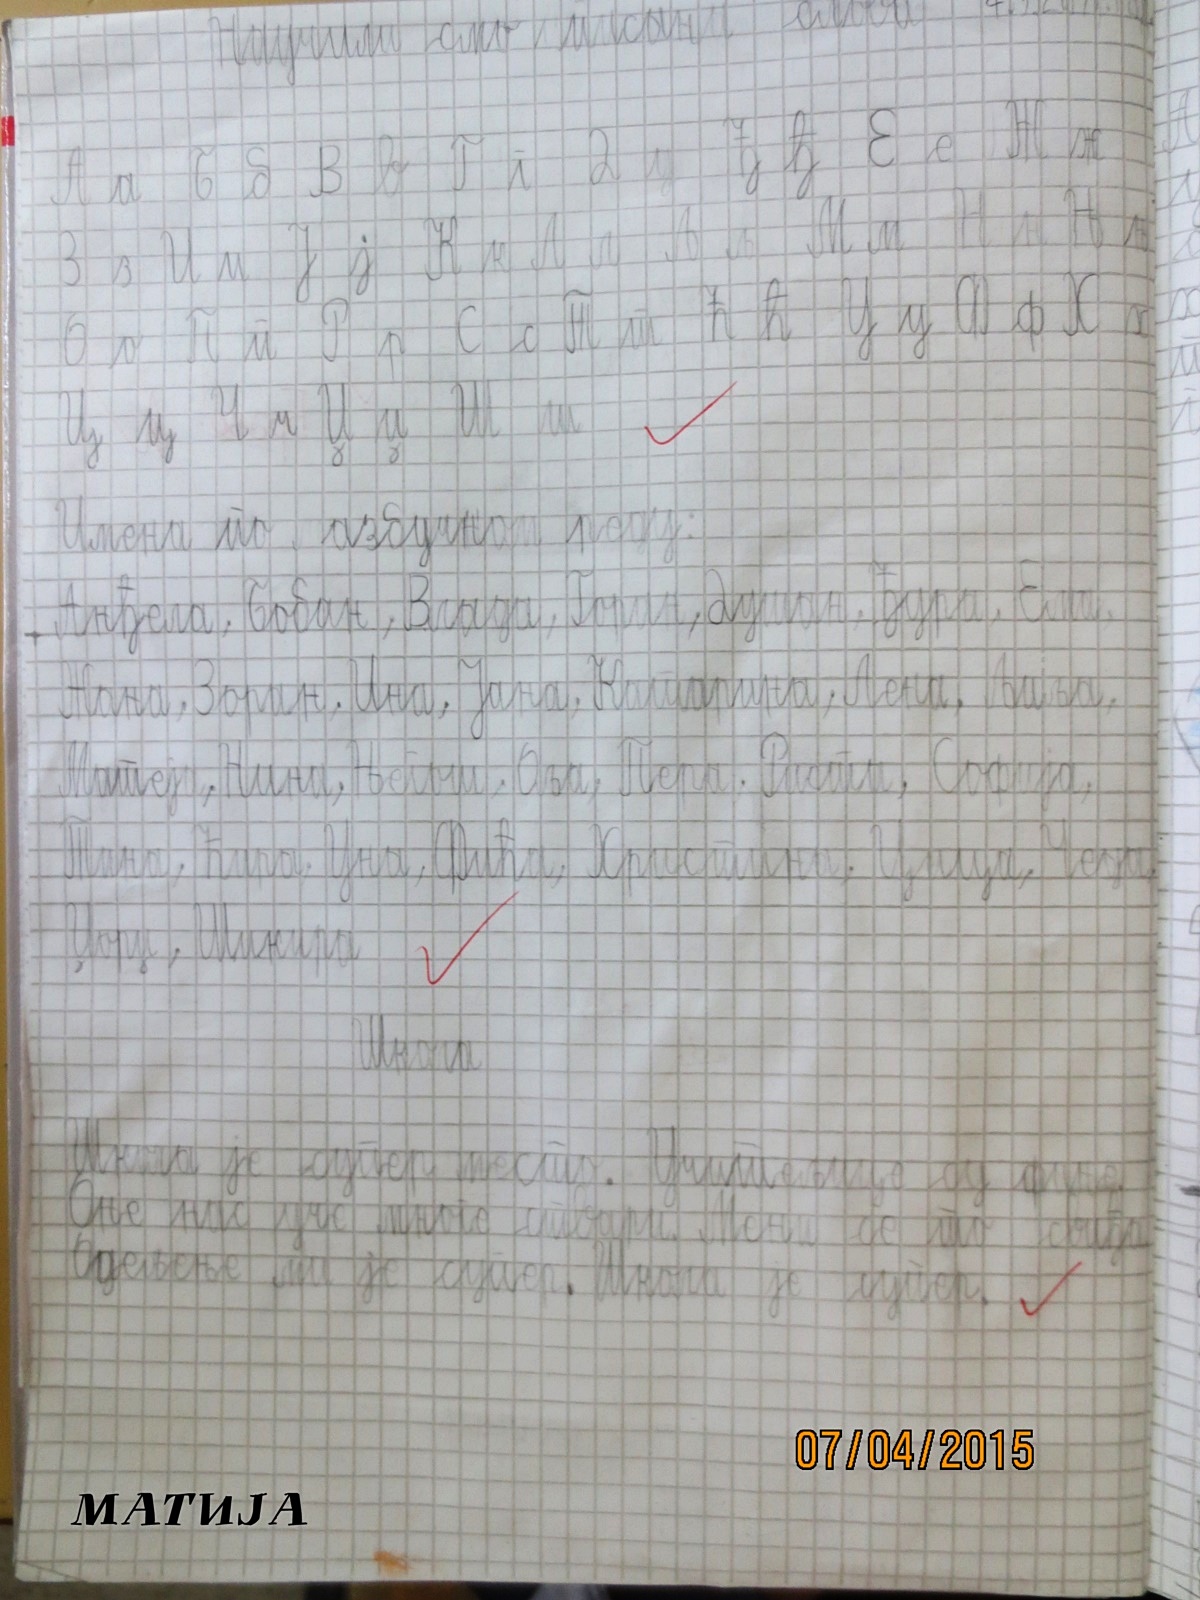 Научили смо писана слова
А а Б б В в Г г Д д Ђ ђ Е е Ж ж
З з И и Ј ј К к Л л Љ љ М м Н н Њ њ
О о П п Р р С с Т т Ћ ћ У у Ф ф Х х
Ц ц Ч ч Џ џ Ш ш
Имена по азбучном реду:
Анђела, Бобан, Влада, Горан, Душан, Ђура, Ема,
Жана, Зоран, Ина, Јана, Катарина, Лена, Љиља,
Матеј, Нина, Оља, Пера, Софија,
Тина, Ћира, Уна, Фића, Христина, Цеца,
Џорџ, Шакира
Школа
Школа је супер место. Учитељице су фине.
Оне нас уче многе ствари. Мени се то свиђа
Одељење ми је супер. Школа је супер.
07/04/2015
МАТИЈА